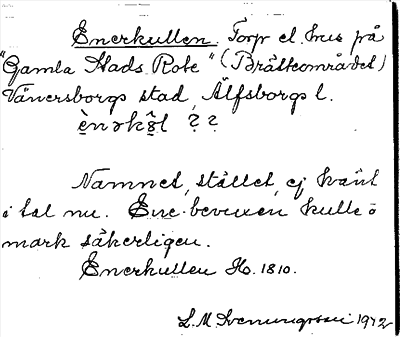 Enerkullen. Torp el. hus på
"Gamla Stads Rote" (Brätteområdet)
Vänersborgs stad, Älfsborgs l.
ènərkũ̀l ??
Namnet, stället, ej känt
i tal nu. Ene-bevuxen kulle o
mark säkerligen.
Enerkullen Ho. 1810.
L.M. Svenungsson 1972